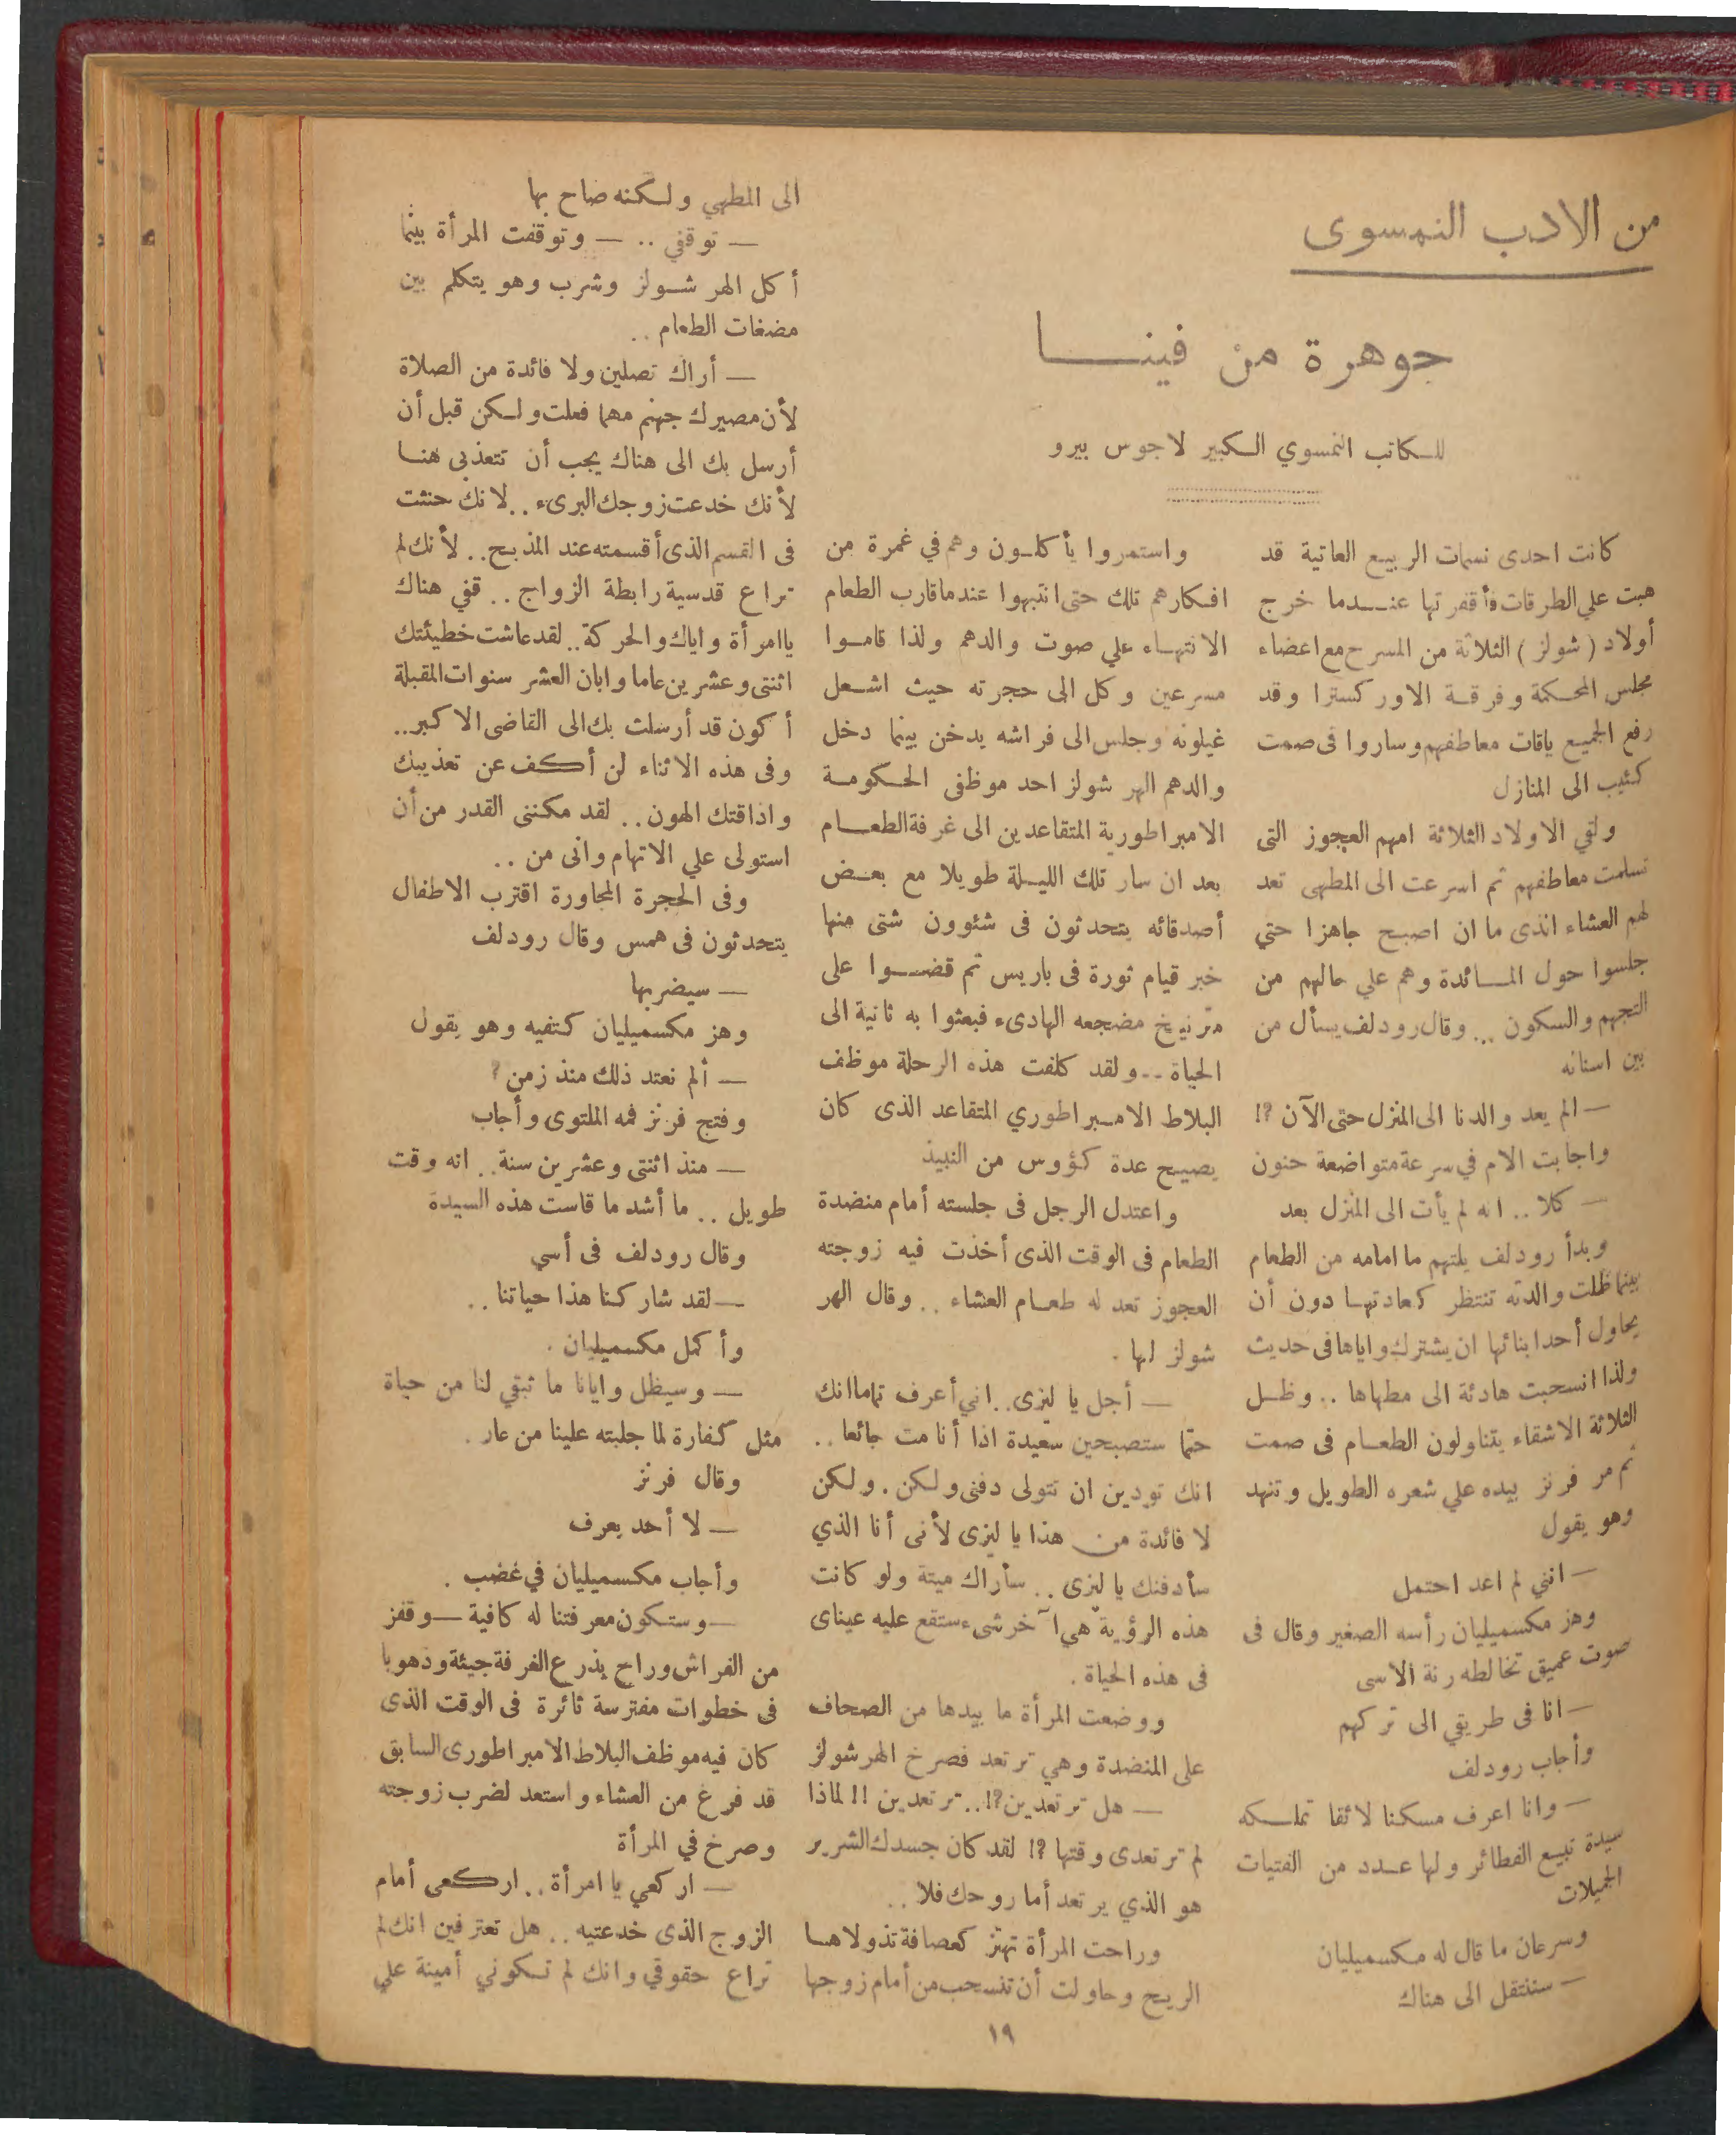 من الادب النمسوى
جوهرة من فينـــا
للكاتب النمسوي الكبير لاجوس بيرو
كانت احدى نسمات الربيع العاتية قد
هبت علي الطرقات فأقفرتها عنـــدما خرج
أولاد ( شولز ) الثلاثة من المسرح مع اعضاء
مجلس المحكمة وفرقة الاوركسترا وقد
رفع الجميع ياقات معاطفهم وساروا فى صمت
كئيب الى المنازل
ولقي الاولاد الثلاثة امهم العجوز التى
تسلمت معاطفهم ثم اسرعت الى المطهى تعد
لهم العشاء الذى ما ان اصبح جاهزا حتي
جلسوا حول المــائدة وهم علي حالهم من
التجهم والسكون ... وقال رودلف يسأل من
بين اسنانه
— الم يعد والدنا الى المنزل حتى الآن ?!
واجابت الام في سرعة متواضعة حنون
— كلا .. انه لم يأت الى المنزل بعد
وبدأ رودلف يلتهم ما امامه من الطعام
بينما ظلت والدته تنتظر كعادتهـا دون أن
يحاول أحد ابنائها ان يشترك واياها فى حديث
ولذا انسحبت هادئة الى مطهاها .. وظـل
الثلاثة الاشقاء يتناولون الطعـام فى صمت
ثم مر فرنز بيده علي شعره الطويل وتنهد
وهو يقول
— انني لم اعد احتمل
وهز مكسميليان رأسه الصغير وقال فى
صوت عميق تخالطه رنة الاسى
— انا فى طريقي الى تركهم
وأجاب رودلف
— وانا اعرف مسكنا لائقا تملـكه
سيدة تبيع الفطائر ولها عـدد من الفتيات
الجميلات
وسرعان ما قال له مكسميليان
— سننتقل الى هناك
واستمروا يأكلـون وهم في غمرة من
افكارهم تلك حتى انتبهوا عندما قارب الطعام
الانتهـاء علي صوت والدهم ولذا قامـوا
مسرعين وكل الى حجرته حيث اشـعل
غيلونه وجلس الى فراشه يدخن بينما دخل
والدهم الهر شولز احد موظفى الحكومـة
الامبراطورية المتقاعدين الى غرفة الطعــام
بعد ان سار تلك الليـلة طويلا مع بعـض
أصدقائه يتحدثون فى شئوون شتى منها
خبر قيام ثورة فى باريس ثم قضــوا على
مترنيخ مضجعه الهادىء فبعثوا به ثانية الى
الحياة .. ولقد كلفت هذه الرحلة موظف
البلاط الامـبراطوري المتقاعد الذى كان
يصيح عدة كؤوس من النبيذ
واعتدل الرجل فى جلسته أمام منضدة
الطعام فى الوقت الذى أخذت فيه زوجته
العجوز تعد له طعـام العشاء .. وقال الهر
شولز لها .
— أجل يا ليزى .. اني أعرف تماما انك
حتما ستصبحين سعيدة اذا أنا مت جائعا ..
انك تودين ان تتولى دفنى ولكن . ولكن
لا فائدة من هذا يا ليزى لأنى أنا الذي
سأدفنك يا ليزى .. سأراك ميتة ولو كانت
هذه الرؤية هي آخر شىء ستقع عليه عيناى
فى هذه الحياة .
ووضعت المرأة ما بيدها من الصحاف
على المنضدة وهي ترتعد فصرخ الهر شولز
— هل ترتعدين ?! .. ترتعدين !! لماذا
لم ترتعدى وقتها ?! لقد كان جسدك الشرير
هو الذي يرتعد أما روحك فلا ..
وراحت المرأة تهتز كعصافة تذولاهـا
الريح وحاولت أن تنسحب من أمام زوجها
الى المطهي ولكنه صاح بها
— توقفي .. — وتوقفت المرأة بينما
أكل الهر شـولز وشرب وهو يتكلم بين
مضغات الطعام ..
— أراك تصلين ولا فائدة من الصلاة
لأن مصيرك جهنم مهما فعلت ولكن قبل أن
أرسل بك الى هناك يجب أن تتعذبى هنـا
لأنك خدعت زوجك البرىء .. لانك حنثت
فى القسم الذى أقسمته عند المذبح .. لأنك لم
تراع قدسية رابطة الزواج .. قفي هناك
يا امرأة واياك والحركة .. لقد عاشت خطيئتك
اثنتى وعشرين عاما وابان العشر سنوات المقبلة
أكون قد أرسلت بك الى القاضى الاكبر ..
وفى هذه الاثناء لن أكف عن تعذيبك
واذاقتك الهون .. لقد مكننى القدر من أن
استولى علي الاتهام وانى من ..
وفى الحجرة المجاورة اقترب الاطفال
يتحدثون فى همس وقال رودلف
— سيضربها
وهز مكسميليان كتفيه وهو يقول
— ألم نعتد ذلك منذ زمن ?
وفتح فرنز فمه الملتوى وأجاب
— منذ اثنتى وعشرين سنة .. انه وقت
طويل .. ما أشد ما قاست هذه السيدة
وقال رودلف فى أسي
— لقد شاركنا هذا حياتنا ..
وأكمل مكسميليان .
— وسيظل وايانا ما تبقي لنا من حياة
مثل كفارة لما جلبته علينا من عار .
وقال فرنز
— لا أحد يعرف
وأجاب مكسميليان في غضب .
— وستكون معرفتنا له كافية — وقفز
من الفراش وراح يذرع الغرفة جيئة وذهوبا
فى خطوات مفترسة ثائرة فى الوقت الذى
كان فيه موظف البلاط الامبراطورى السابق
قد فرغ من العشاء واستعد لضرب زوجته
وصرخ في المرأة
— اركعي يا امرأة .. اركعى أمام
الزوج الذى خدعتيه .. هل تعترفين انك لم
تراع حقوقي وانك لم تكوني أمينة علي
١٩